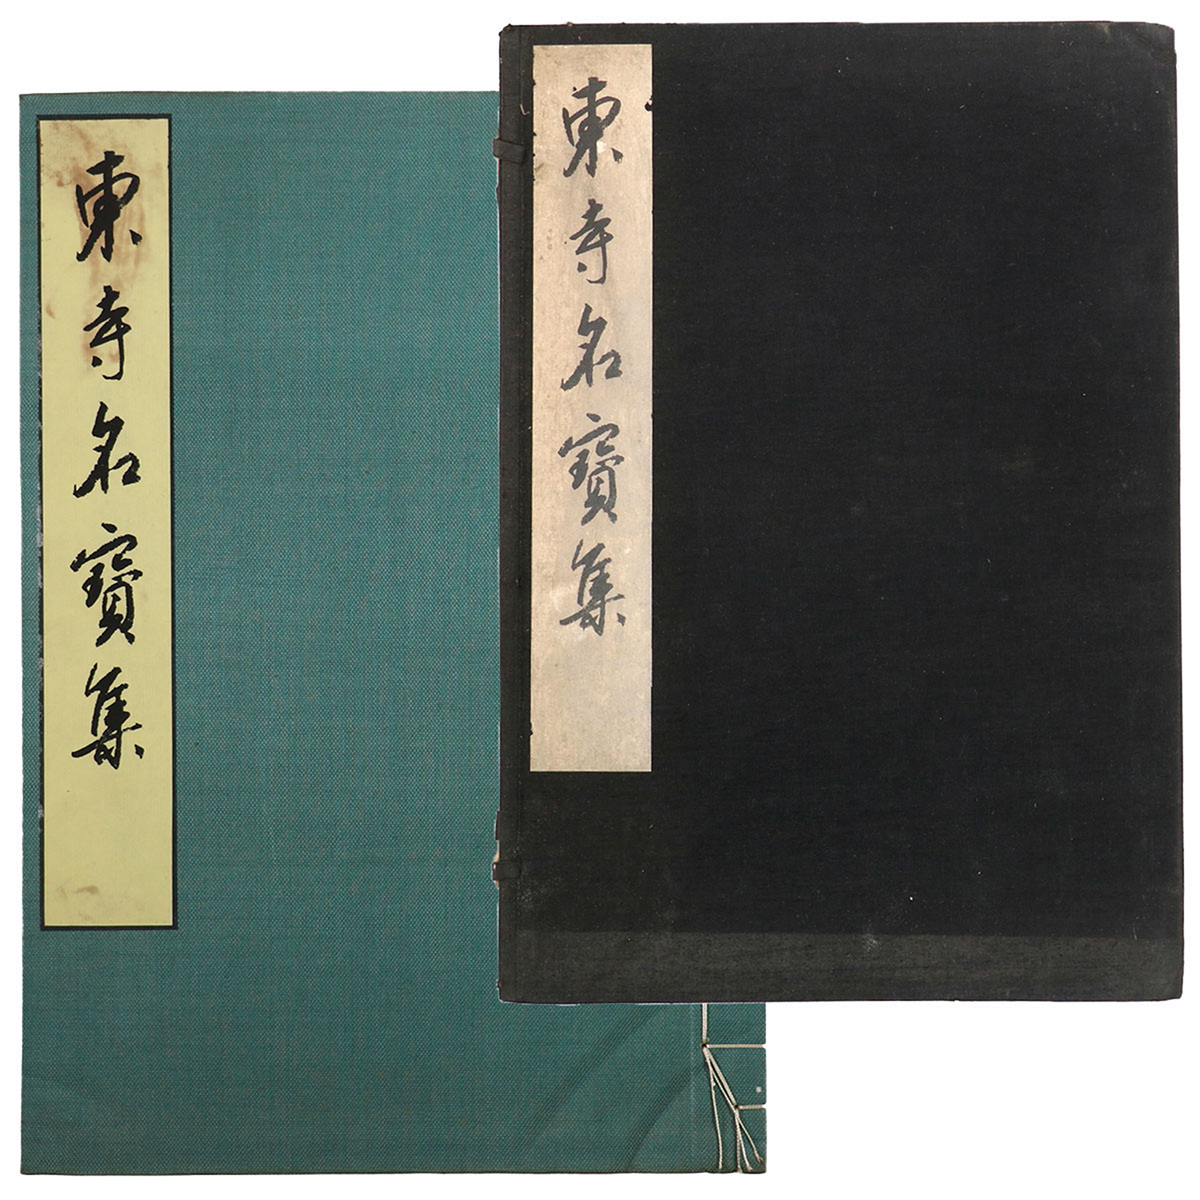 東寺名寶集
東寺名寶集